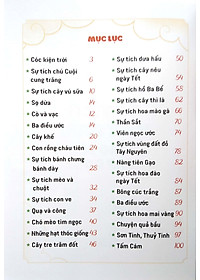 MỤC LỤC
Cóc kiện trời 3
Sự tích chú Cuội
cung trăng 6
Sự tích cây vú sữa 10
Sọ dừa 14
Cò và vạc 12
Ba điều ước 14
Cây khế 20
Con rồng cháu tiên 24
Sự tích bánh chưng
bánh dày 28
Sự tích mèo và
chuột 32
Sự tích con ve 34
Quạ và công 37
Chó mèo tìm ngọc 40
Những hạt thóc giống 43
Cây tre trăm đốt 46
Sự tích dưa hấu 50
Sự tích cây nêu
ngày Tết 54
Sự tích hồ Ba Bể 58
Sự tích cây thì là 62
Sự tích hoa mào gà 66
Thần Sắt 70
Viên ngọc ước 74
Sự tích vùng đất đỏ
Tây Nguyên 78
Nàng tiên Gạo 82
Sự tích hoa đào
ngày Tết 84
Bông cúc trắng 87
Ba điều ước 89
Sự tích hoa mai vàng 90
Chuyện quả bầu 94
Sơn Tinh, Thuỷ Tinh 97
Tấm Cám 100